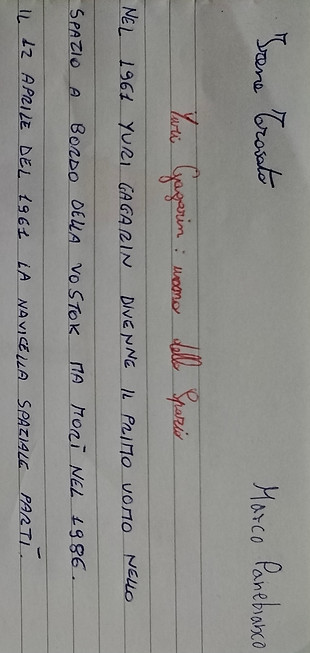 Irene Trovato
Marco Panebianco
Yuri Gagarin: uomo dello Spazio
NEL 1961 YURI GAGARIN DIVENNE IL PRIMO UOMO NELLO
SPAZIO A BORDO DELLA VOSTOK MA MORÌ NEL 1986.
IL 12 APRILE DEL 1961 LA NAVICELLA SPAZIALE PARTÌ.